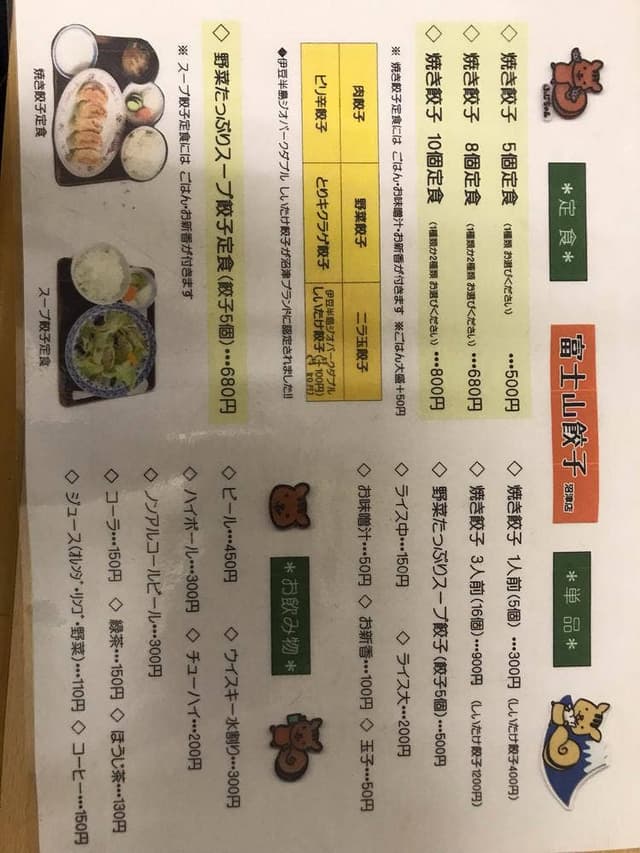 富士山餃子 沼津店
＊定食＊
◇ 焼き餃子 5個定食 (1種類 お選びください) •••500円
◇ 焼き餃子 8個定食 (1種類か2種類 お選びください)•••680円
◇ 焼き餃子 10個定食 (1種類か2種類 お選びください)•••800円
※ 焼き餃子定食には ごはん・お味噌汁・お新香が付きます ※ごはん大盛+50円
肉餃子 野菜餃子 ニラ玉餃子
ピリ辛餃子 とりキクラゲ餃子 伊豆半島ジオパークダブル しいたけ餃子
◆伊豆半島ジオパークダブル しいたけ餃子が沼津ブランドに認定されました!!
◇ 野菜たっぷりスープ餃子定食 (餃子5個) •••680円
※ スープ餃子定食には ごはん・お新香が付きます
焼き餃子定食
スープ餃子定食
＊単品＊
◇ 焼き餃子 1人前 (5個) •••300円 (しいたけ餃子400円)
◇ 焼き餃子 3人前 (16個)•••900円 (しいたけ餃子1200円)
◇ 野菜たっぷりスープ餃子 (餃子5個)•••500円
◇ ライス中•••150円 ◇ ライス大•••200円
◇ お味噌汁•••50円 ◇ お新香•••100円 ◇ 玉子•••50円
＊お飲み物＊
◇ ビール•••450円 ◇ ウイスキー水割り•••300円
◇ ハイボール•••300円 ◇ チューハイ•••200円
◇ ノンアルコールビール•••300円
◇ コーラ•••150円 ◇ 緑茶•••150円 ◇ ほうじ茶•••130円
◇ ジュース(オレンジ・リンゴ・野菜)•••110円 ◇ コーヒー•••150円